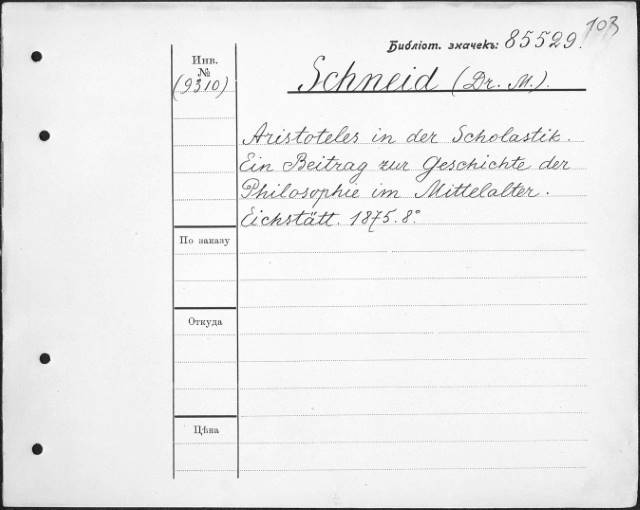 103
Библіот. значекъ: 85529.
Инв.
№
(9310)
Schneid (Dr. M.).
Aristoteles in der Scholastik.
Ein Beitrag zur Geschichte der
Philosophie im Mittelalter.
Eichstätt. 1875. 8°
По заказу
Откуда
Цѣна